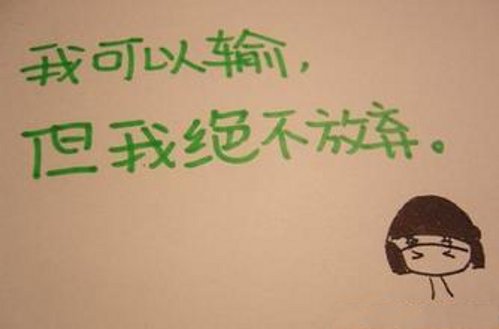 我可以输,
但我绝不放弃。